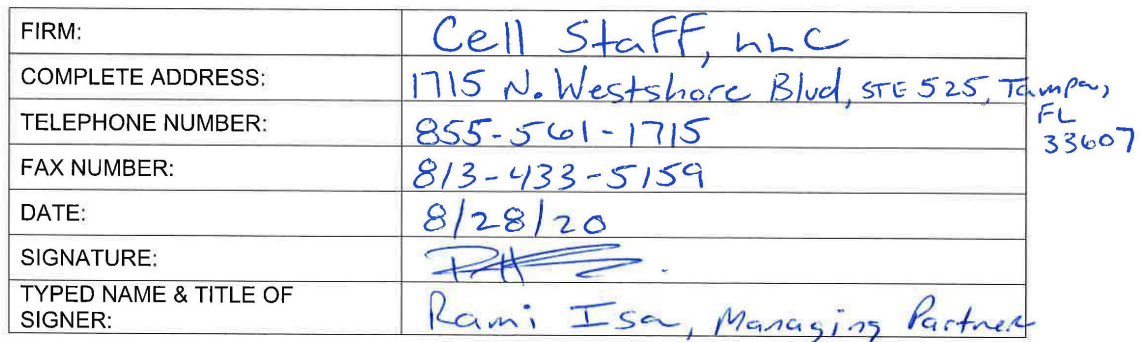 FIRM: Cell Staff, LLC
COMPLETE ADDRESS: 1715 N. Westshore Blvd, STE 525, Tampa,
FL
33607
TELEPHONE NUMBER: 855-561-1715
FAX NUMBER: 813-433-5159
DATE: 8/28/20
SIGNATURE:
TYPED NAME & TITLE OF
SIGNER: Rami Isa, Managing Partner